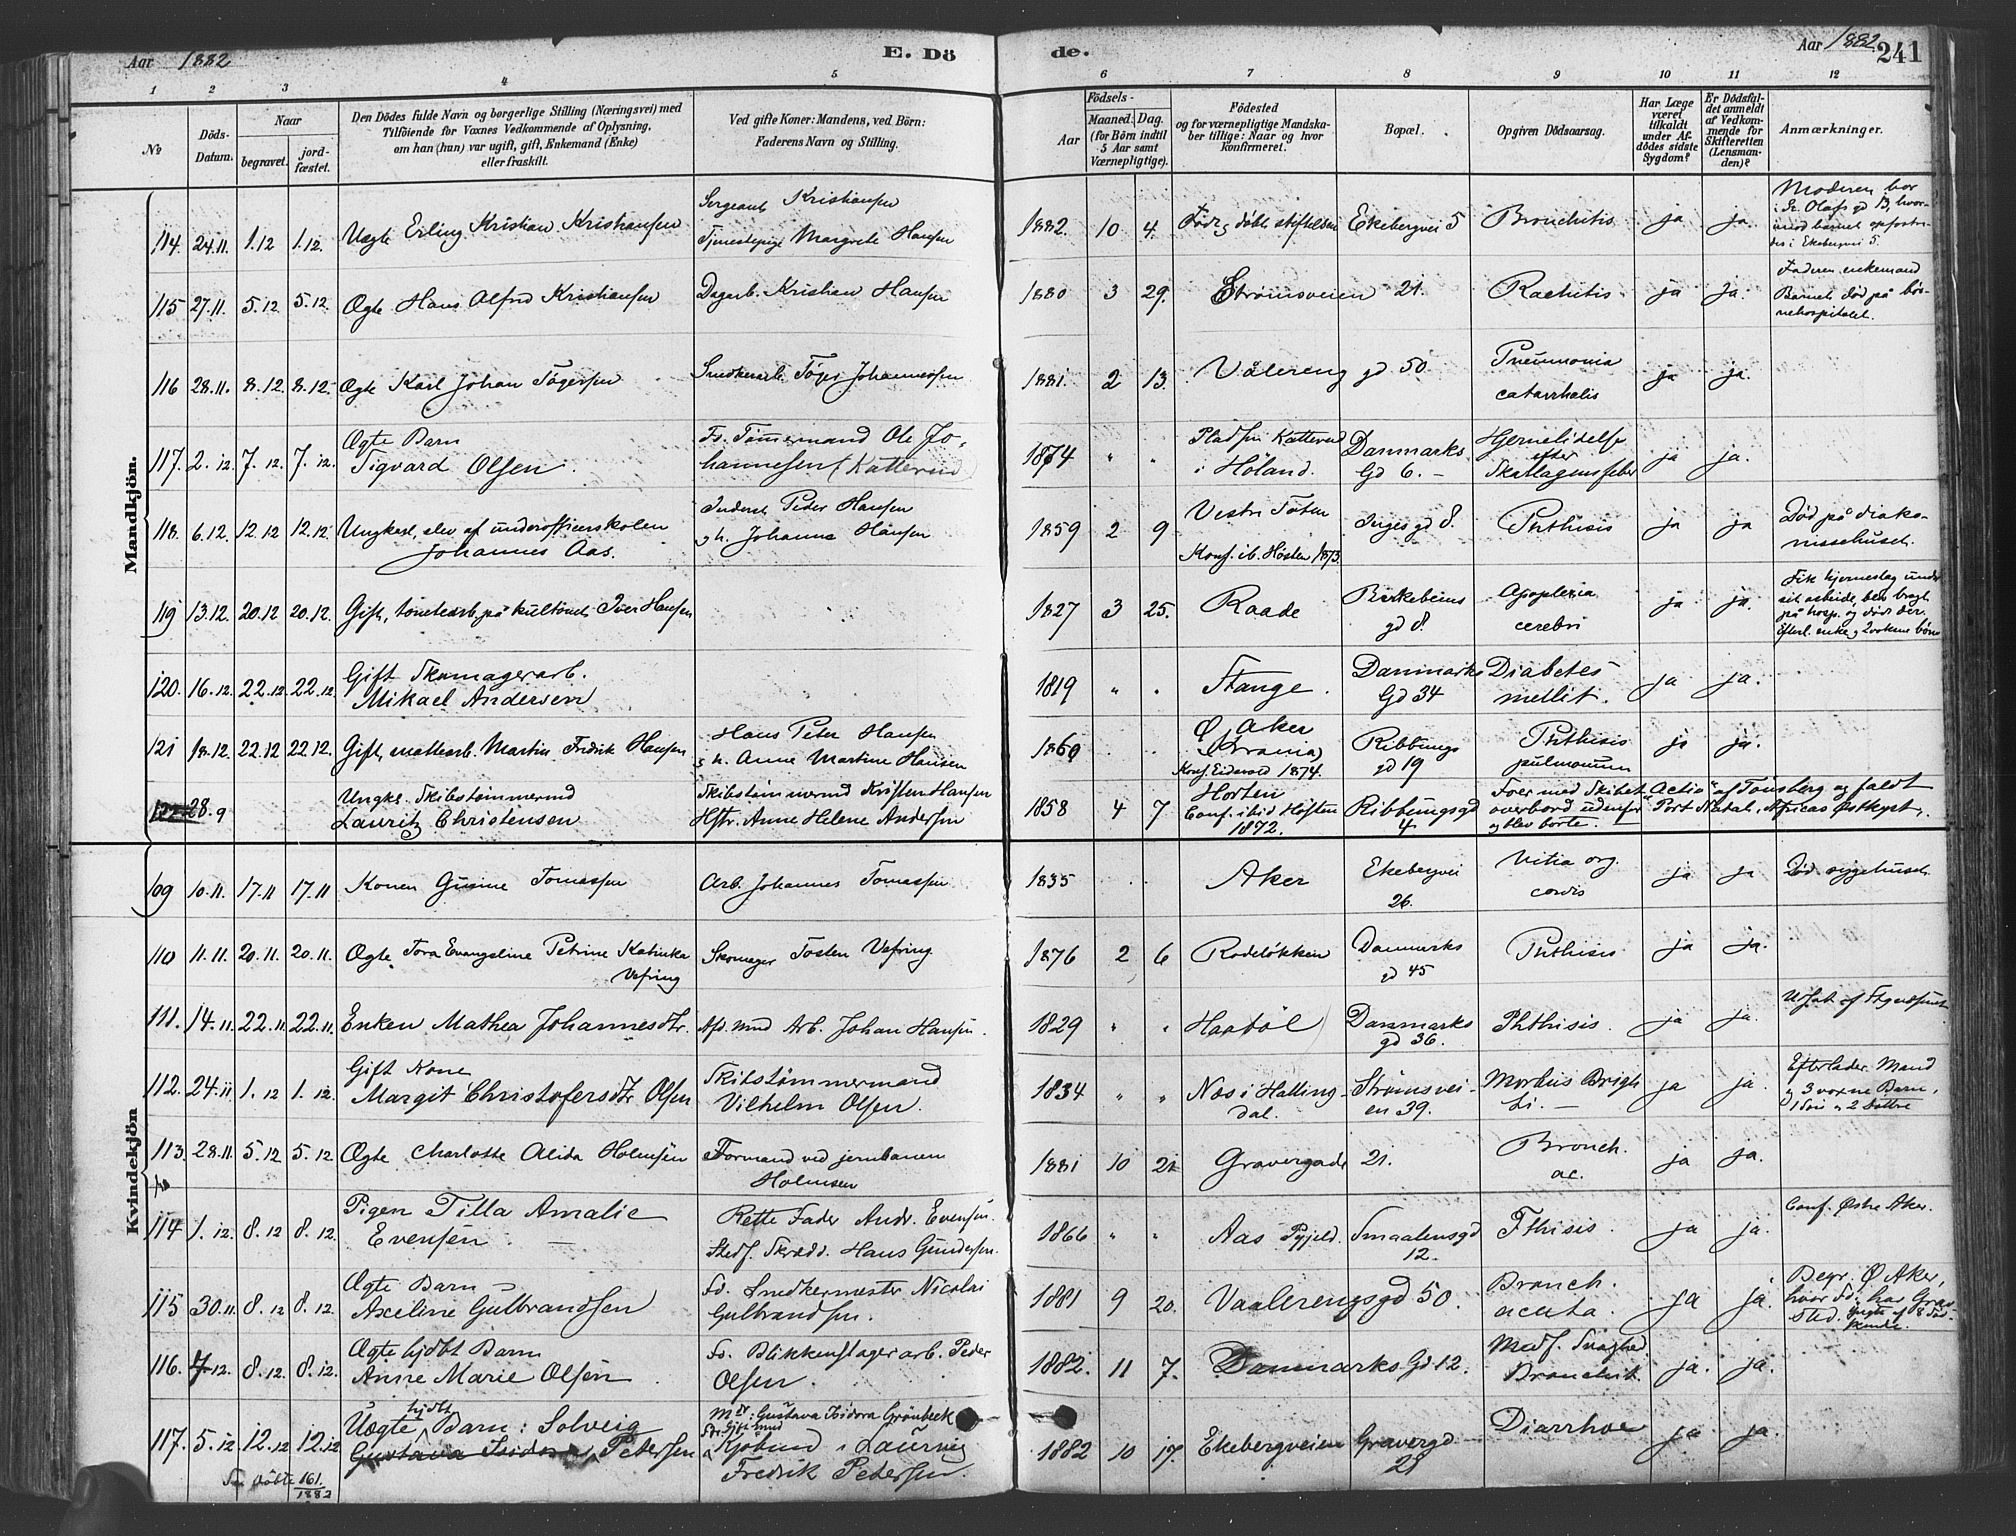 Aar 1882 E. Dö
de. Aar 1882 241
1 2 3 4 5 6 7 8 9 10 11 12
№
Döds-
Datum.
Naar
begravet.
jord-
fæstet.
Den Dödes fulde Navn og borgerlige Stilling (Næringsvei) med
Tilföiende for Voxnes Vedkommende af Oplysning,
om han (hun) var ugift, gift, Enkemand (Enke)
eller fraskilt.
Ved gifte Koner: Mandens, ved Börn:
Faderens Navn og Stilling.
Födsels-
Aar
Maaned.
Dag.
(for Börn indtil
5 Aar samt
Værnepligtige).
Födested
og for værnepligtige Mandska-
ber tillige: Naar og hvor
konfirmeret.
Bopæl.
Opgiven Dödsaarsag.
Har Læge
været
tilkaldt
under Af-
dödes sidste
Sygdom?
Er Dödsfal-
det anmeldt
af Vedkom-
mende for
Skifteretten
(Lensman-
den)?
Anmærkninger.
Mandkjön.
114. 24.11. 1.12 1.12. Uægte Erling Kristian Kristiansen
Sergeant Kristiansen
Tjenestepige Margrete Hansen
1882. 10 4. Födselsstiftelsen Ekebergvei 5 Bronchitis ja ja.
Moderen bor
i St. Olafs gd 13, hvor-
imod barnet opfostre-
des i Ekebergvei 5.
115 27.11. 5.12 5.12. Ægte Hans Alfred Kristiansen
Dagarb. Kristian Hansen
1880 3 29. Strömsveien 21. Rachitis ja ja.
Faderen enkemand
Barnet död på bör-
nehospitalet.
116 28.11. 8.12 8.12. Ægte Karl Johan Tögersen
Snedkerarb. Töger Johannessen
1881. 2 13. Vålereng gd 50. Pneumonia
catarrhalis ja ja.
117. 2.12. 7.12. 7.12. Ægte Barn
Sigvard Olsen.
Fr. Tömmermand Ole Jo-
hannesen (Katterud)
1874 " . Pladsen Katterud
i Höland. Danmarks
Gd 6. – Hjernelidelse
efter
Skarlagensfeber ja ja.
118. 6.12. 12.12 12.12. Ungkarl, elev af underofficerskolen
Johannes Aas.
Inderst Peder Hansen
og h. Johanne Hansen
1859 2 9 Vestre Toten
Konf. ib. Hösten 1873. Inges gd 8. Phthisis ja ja
Död på diako-
nissehuset.
119 13.12. 20.12 20.12. Gift, tomtearb. på kultomt. Iver Hansen
1827 3 25. Raade Birkebeins
gd 8. Apoplexia
cerebri ja ja
Fik hjerneslag under
sit arbeide, blev bragt
på hosp. og döde der.
Efterl. enke og 2 voksne börn
120. 16.12. 22.12 22.12. Gift Skomagerarb.
Mikael Andersen
1819 " . Stange. Danmarks
Gd 34 Diabetes
mellit. ja ja.
121 18.12. 22.12 22.12. Gift, Martin Fredrik Hansen
Hans Peter Hansen
og h. Anne Martine Hansen
1860 . . Ö. Aker
(Urania)
Konf. Eidsvold 1874. Ribbungs
gd 19 Phthisis
pulmonum ja ja.
122 28.9 Ungk. Skibstömmermd
Lauritz Christensen
Skibstömmermd Kristen Hansen
Hstr. Anne Helene Andersen
1858 4 7 Horten
Conf. ibid Hösten
1872. Ribbungsgd
4
Foer med Skibet "Actio" af Tönsberg og faldt
overbord udenfor Port Natal, Africas Østkyst,
og blev borte.
Kvindekjön
109 10.11. 17.11 17.11 Konen Gunine Tomassen
Arb. Johannes Tomassen.
1835 . . Aker Ekebergvei
26. Vitia org.
cordis ja ja Död i sygehuset.
110 11.11. 20.11. 20.11. Ægte Tora Evangeline Petrine Katinka
Vefring
Skomager Tosten Vefring.
1876 2 6 Rodelökken Danmarks
gd 45 Phthisis ja ja.
111. 14.11. 22.11. 22.11. Enken Mathea Johannesdtr.
Afd. mand Arb. Johan Hansen.
1829 " " Haaböl Danmarks
gd 36. Phthisis. ja ja.
112. 24.11 1.12. 1.12. Gift Kone
Margit Christofersdtr Olsen
Skibstömmermand
Vilhelm Olsen.
1834 " " Næs i Halling-
dal. Strömsvei-
en 39. Morbus Brigh-
ti. – ja ja.
Efterlader Mand
og 3 voxne Barn,
1 Sön og 2 Döttre
113. 28.11. 5.12 5.12 Ægte Charlotte Alida Holmsen
Formand ved jernbanen
Holmsen
1881 10 21 Gravergade 21. Bronch.
ac. ja ja.
114 1.12. 8.12 8.12. Pigen Tilla Amalie
Evensen –
Rette Fader Andr. Evensen.
Stedf. Skrædd. Hans Gundersen.
1866 " " Aas Smaalensgd
12. Fthisis. ja ja.
Conf. Østre Aker.
115 30.11. 8.12 8.12. Ægte Barn
Axeline Gulbrandsen
Fd. Snedkermester Nicolai
Gulbrandsen.
1881 9 20. Vaalerengsgd 50. Bronch.
acuta. ja ja.
Begr. Ø Aker,
hvor Fd. har Grav-
sted.
116. 7.12. 8.12. 8.12. Ægte hjdbt Barn
Anne Marie Olsen.
Fd. Blikkenslagerarb. Peder
Olsen.
1882. 11 7. Danmarks Gd 12. Medf. Svaghed
Bronchit. ja. ja.
117. 5.12 12.12 12.12 Uægte hjdbt Barn: Solveig
Gustava Isidora Petersen
Se Döbte 161/1882
Mdr: Gustava Isidora Grönbeck
Kjöbmd i Laurvig
Fredrik Petersen.
1882 10 17. Ekebergveien Gravergd
21 Diarrhoe ja ja.